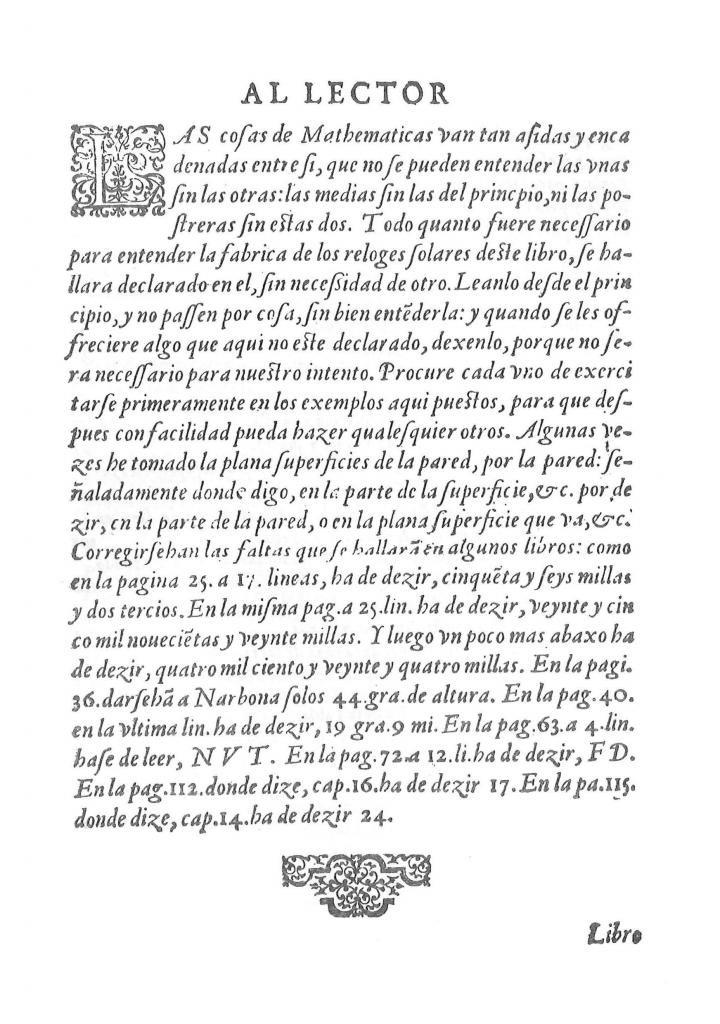 AL LECTOR
LAS coſas de Mathematicas van tan aſidas y enca
denadas entre ſi, que no ſe pueden entender las vnas
ſin las otras: las medias ſin las del princpio, ni las po-
ſtreras ſin eſtas dos. Todo quanto fuere neceſſario
para entender la fabrica de los reloges ſolares deſte libro, ſe ha-
llara declarado en el, ſin neceſsidad de otro. Leanlo deſde el prin
cipio, y no paſſen por coſa, ſin bien entẽderla: y quando ſe les of-
freciere algo que aqui no eſte declarado, dexenlo, porque no ſe-
ra neceſſario para nueſtro intento. Procure cada vno de exerci
tarſe primeramente en los exemplos aqui pueſtos, para que deſ-
pues con facilidad pueda hazer qualeſquier otros. Algunas ve-
zes he tomado la plana ſuperficies de la pared, por la pared: ſe-
ñaladamente donde digo, en la parte de la ſuperficie, &c. por de
zir, en la parte de la pared, o en la plana ſuperficie que va, &c.
Corregirſehan las faltas que ſe hallarã en algunos libros: como
en la pagina 25. a 17. lineas, ha de dezir, cinquẽta y ſeys millas
y dos tercios. En la miſma pag. a 25. lin. ha de dezir, veynte y cin
co mil noueciẽtas y veynte millas. Y luego vn poco mas abaxo ha
de dezir, quatro mil ciento y veynte y quatro millas. En la pagi.
36. darſehã a Narbona ſolos 44. gra. de altura. En la pag. 40.
en la vltima lin. ha de dezir, 19 gra. 9 mi. En la pag. 63. a 4. lin.
haſe de leer, NVT. En la pag. 72. a 12. li. ha de dezir, FD.
En la pag. 112. donde dize, cap. 16. ha de dezir 17. En la pa. 115.
donde dize, cap. 14. ha de dezir 24.
Libro